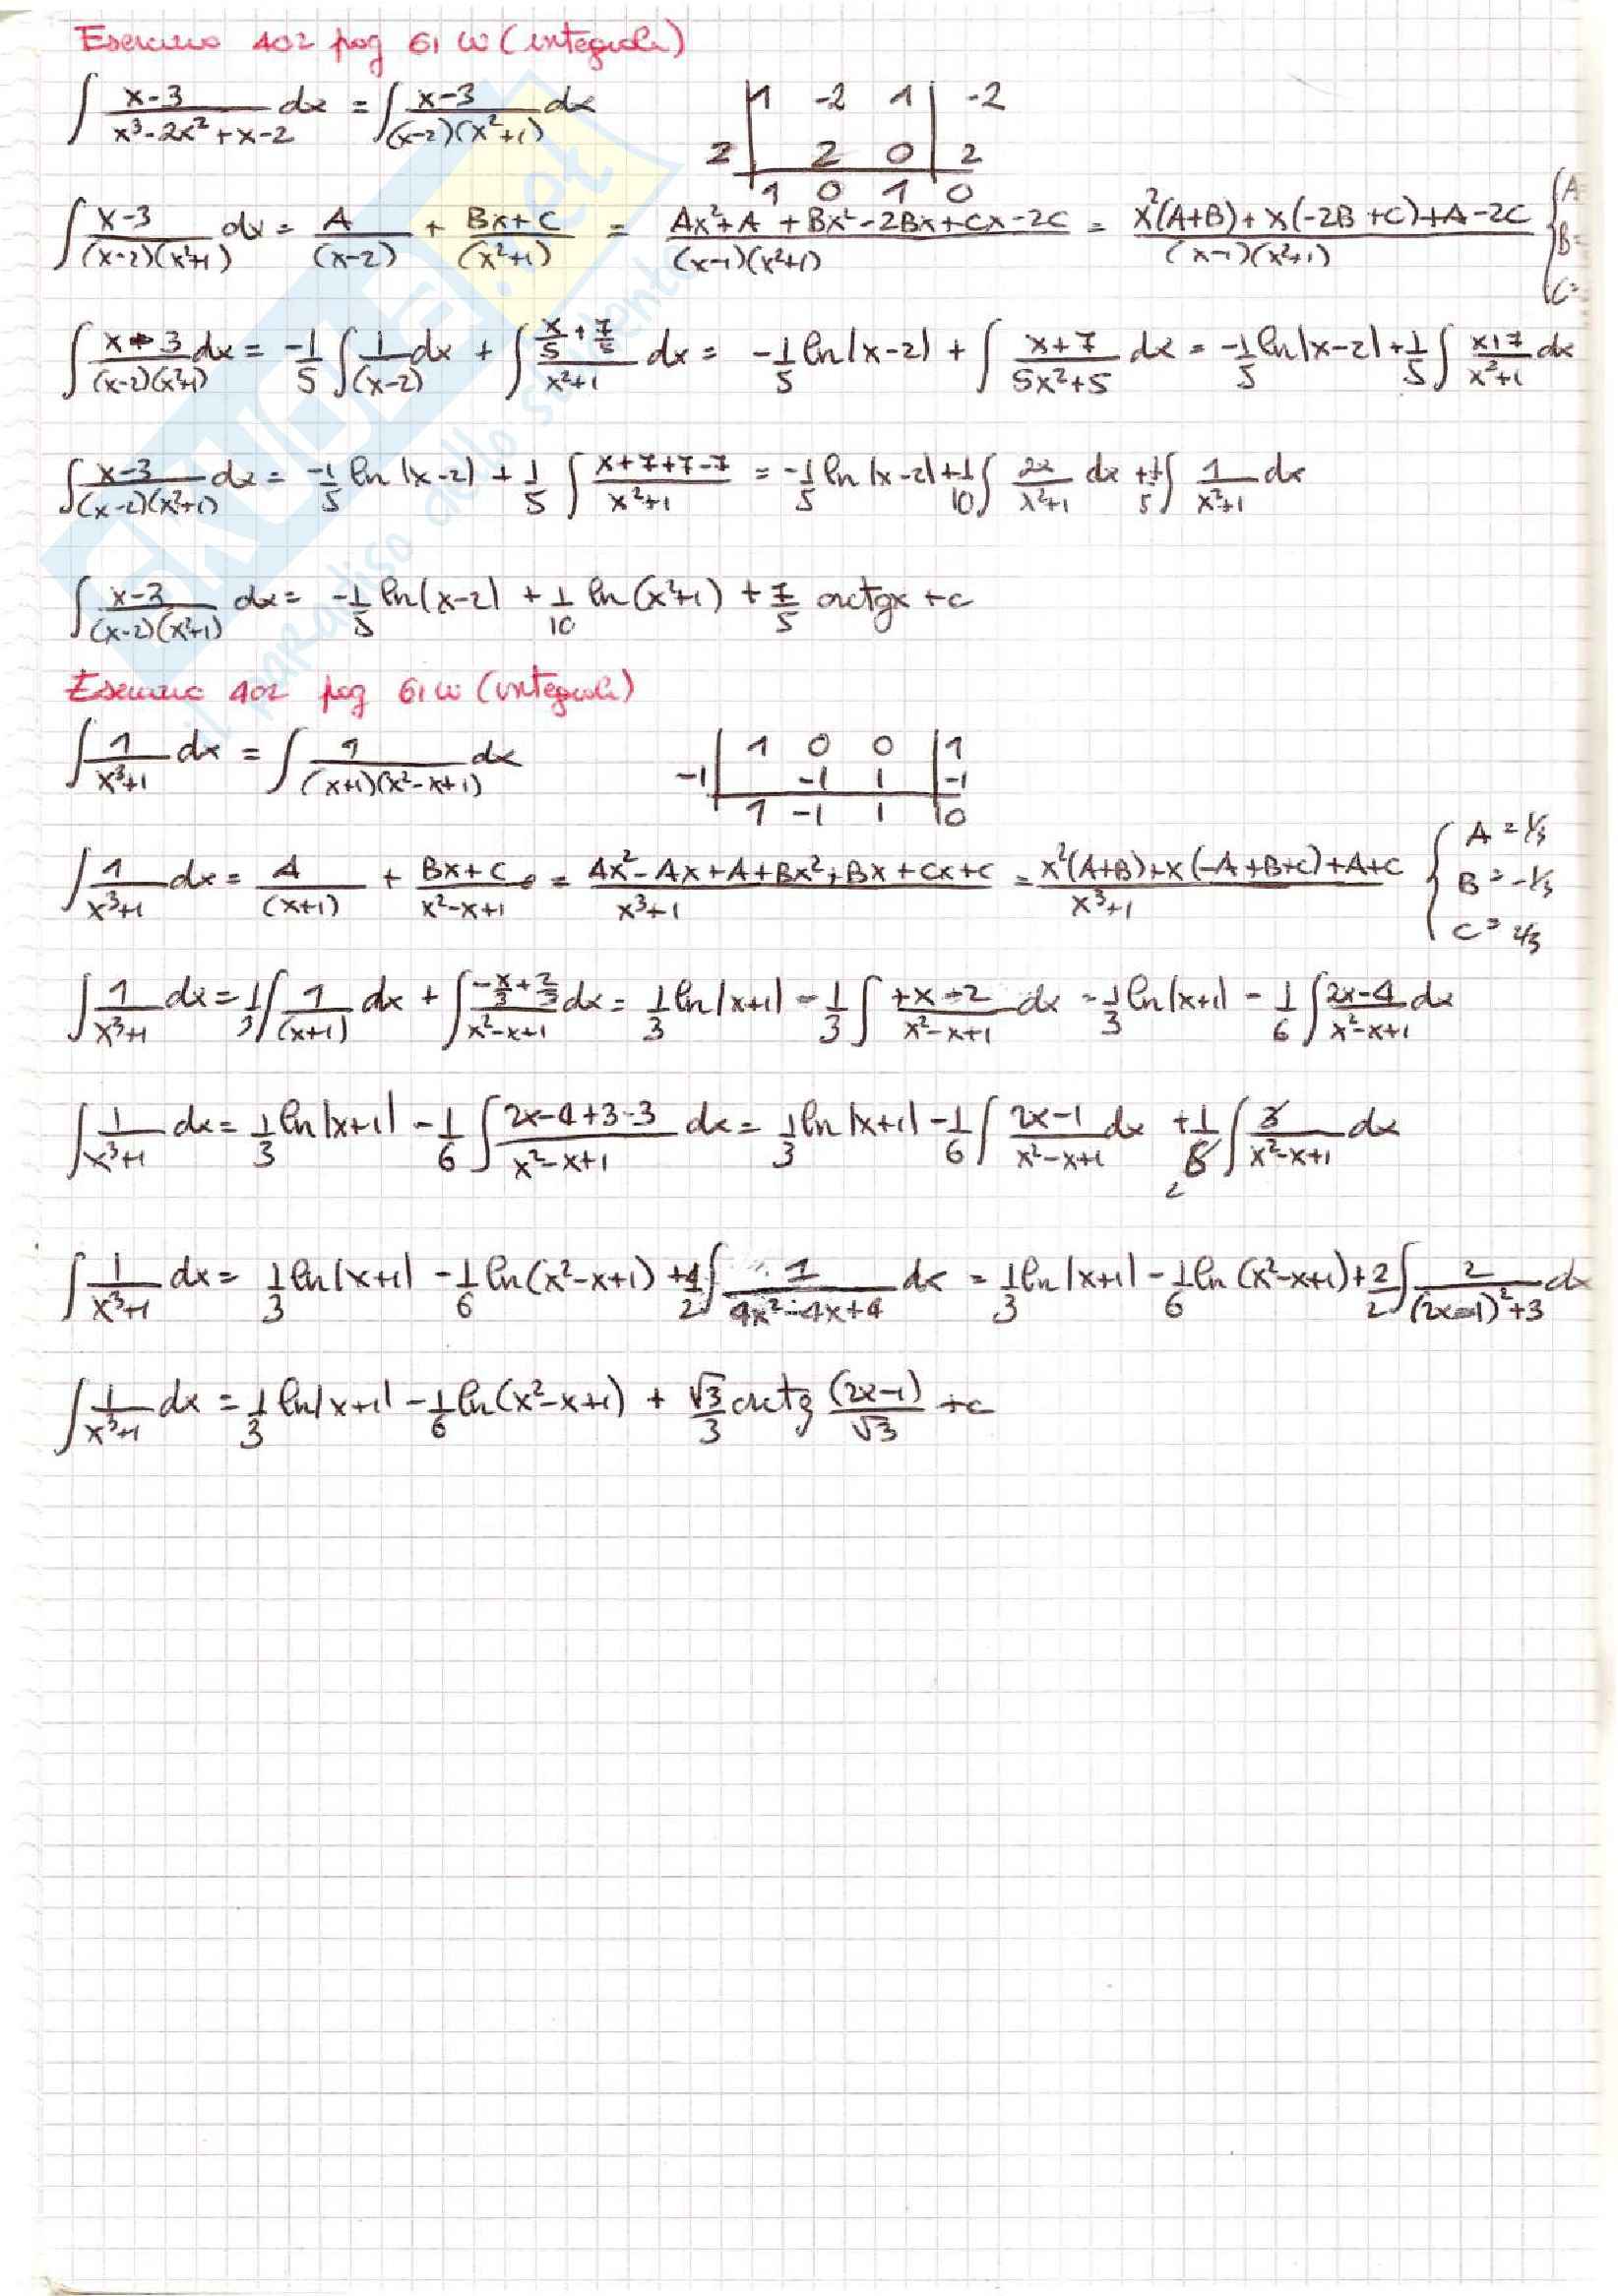 Esercizio 402 pag 61 W (integrali)
∫ x-3/(x³-2x²+x-2) dx = ∫ x-3/((x-2)(x²+1)) dx
1 -2 1 | -2
2 | 2 0 | 2
1 0 1 0
∫ x-3/((x-2)(x²+1)) dx = A/(x-2) + Bx+C/(x²+1) = Ax²+A+Bx²-2Bx+Cx-2C/((x-1)(x²+1)) = x²(A+B)+x(-2B+C)+A-2C/((x-1)(x²+1)) { A= B= C=
∫ x-3/((x-2)(x²+1)) dx = -1/5 ∫ 1/(x-2) dx + ∫ (x/5+7/5)/(x²+1) dx = -1/5 ln|x-2| + ∫ x+7/(5x²+5) dx = -1/5 ln|x-2| + 1/5 ∫ x+7/(x²+1) dx
∫ x-3/((x-2)(x²+1)) dx = -1/5 ln|x-2| + 1/5 ∫ x+7+7-7/(x²+1) = -1/5 ln|x-2| + 1/10 ∫ 2x/(x²+1) dx + 7/5 ∫ 1/(x²+1) dx
∫ x-3/((x-2)(x²+1)) dx = -1/5 ln|x-2| + 1/10 ln(x²+1) + 7/5 arctgx + c
Esercizio 402 pag 61 W (integrali)
∫ 1/(x³+1) dx = ∫ 1/((x+1)(x²-x+1)) dx
1 0 0 | 1
-1 | -1 1 | -1
1 -1 1 | 0
∫ 1/(x³+1) dx = A/(x+1) + Bx+C/(x²-x+1) = Ax²-Ax+A+Bx²+Bx+Cx+C/(x³+1) = x²(A+B)+x(-A+B+C)+A+C/(x³+1) { A=1/3 B=-1/3 C=2/3
∫ 1/(x³+1) dx = 1/3 ∫ 1/(x+1) dx + ∫ (-x/3+2/3)/(x²-x+1) dx = 1/3 ln|x+1| - 1/3 ∫ +x-2/(x²-x+1) dx = 1/3 ln|x+1| - 1/6 ∫ 2x-4/(x²-x+1) dx
∫ 1/(x³+1) dx = 1/3 ln|x+1| - 1/6 ∫ 2x-4+3-3/(x²-x+1) dx = 1/3 ln|x+1| - 1/6 ∫ 2x-1/(x²-x+1) dx + 1/6 ∫ 3/(x²-x+1) dx
2
∫ 1/(x³+1) dx = 1/3 ln|x+1| - 1/6 ln(x²-x+1) + 4/2 ∫ 1/(4x²-4x+4) dx = 1/3 ln|x+1| - 1/6 ln(x²-x+1) + 2/2 ∫ 2/((2x-1)²+3) dx
∫ 1/(x³+1) dx = 1/3 ln|x+1| - 1/6 ln(x²-x+1) + √3/3 arctg (2x-1)/√3 + c
skuola.net
il paradiso dello studente